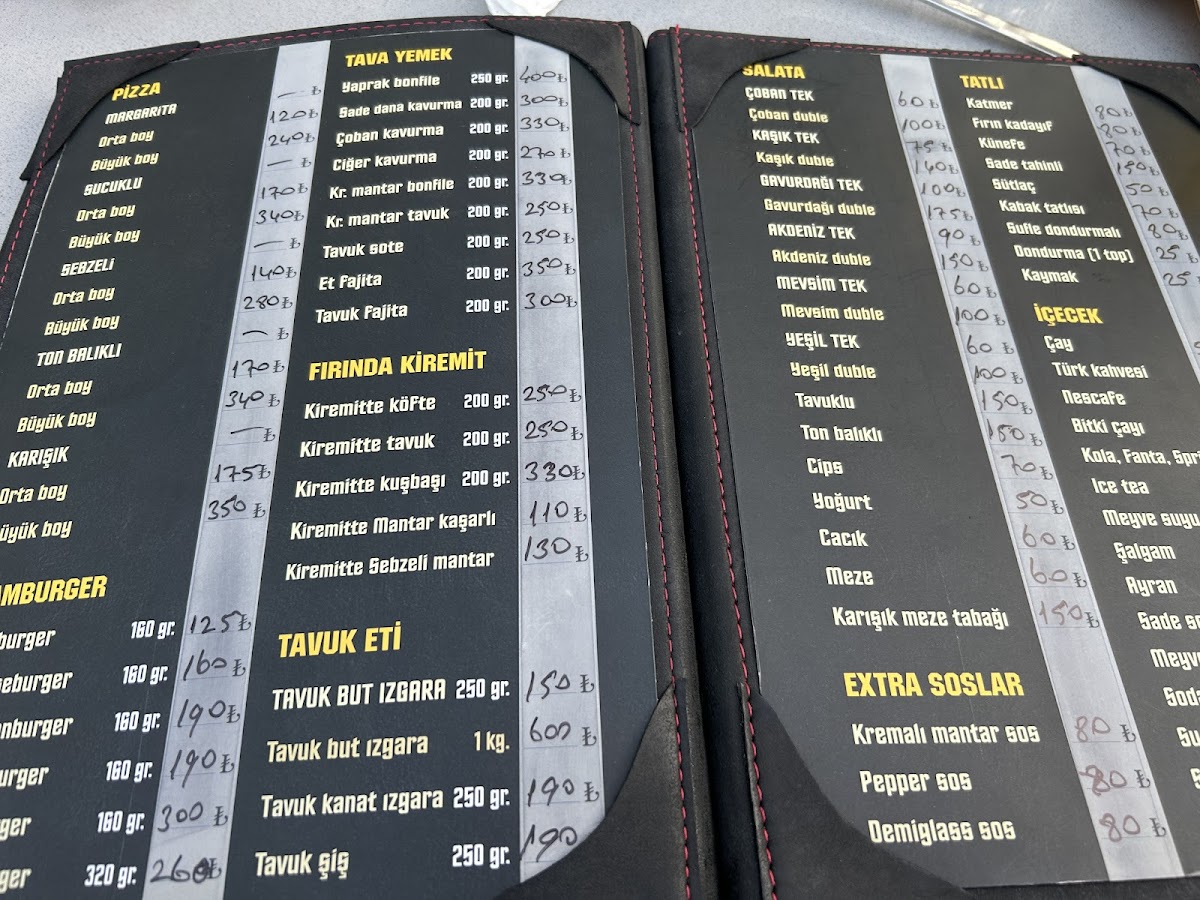 PİZZA
MARGARITA — ₺
Orta boy 120₺
Büyük boy 240₺
SUCUKLU — ₺
Orta boy 170₺
Büyük boy 340₺
SEBZELİ — ₺
Orta boy 140₺
Büyük boy 280₺
TON BALIKLI — ₺
Orta boy 170₺
Büyük boy 340₺
KARIŞIK — ₺
Orta boy 175₺
üyük boy 350₺
AMBURGER
burger 160 gr. 125₺
seburger 160 gr. 160₺
nburger 160 gr. 190₺
urger 160 gr. 190₺
ger 160 gr. 300₺
ger 320 gr. 260₺
TAVA YEMEK
Yaprak bonfile 250 gr. 400₺
Sade dana kavurma 200 gr. 300₺
Çoban kavurma 200 gr. 330₺
Ciğer kavurma 200 gr. 270₺
Kr. mantar bonfile 200 gr. 330₺
Kr. mantar tavuk 200 gr. 250₺
Tavuk sote 200 gr. 250₺
Et Fajita 200 gr. 350₺
Tavuk Fajita 200 gr. 300₺
FIRINDA KİREMİT
Kiremitte köfte 200 gr. 250₺
Kiremitte tavuk 200 gr. 250₺
Kiremitte kuşbaşı 200 gr. 330₺
Kiremitte Mantar kaşarlı 110₺
Kiremitte Sebzeli mantar 130₺
TAVUK ETİ
TAVUK BUT IZGARA 250 gr. 150₺
Tavuk but ızgara 1 kg. 600₺
Tavuk kanat ızgara 250 gr. 190₺
Tavuk şiş 250 gr. 190
SALATA
ÇOBAN TEK 60₺
Çoban duble 100₺
KAŞIK TEK 75₺
Kaşık duble 140₺
GAVURDAĞI TEK 100₺
Gavurdağı duble 175₺
AKDENİZ TEK 90₺
Akdeniz duble 150₺
MEVSİM TEK 60₺
Mevsim duble 100₺
YEŞİL TEK 60₺
Yeşil duble 100₺
Tavuklu 150₺
Ton balıklı 150₺
Cips 70₺
Yoğurt 50₺
Cacık 60₺
Meze 60₺
Karışık meze tabağı 150₺
EXTRA SOSLAR
Kremalı mantar sos 80₺
Pepper sos 80₺
Demiglass sos 80₺
TATLI
Katmer 80₺
Fırın kadayıf 80₺
Künefe 70₺
Sade tahinli 150₺
Sütlaç 50₺
Kabak tatlısı 70₺
Sufle dondurmalı 80₺
Dondurma (1 top) 25₺
Kaymak 25
İÇECEK
Çay
Türk kahvesi
Nescafe
Bitki çayı
Kola, Fanta, Spri
Ice tea
Meyve suyu
Şalgam
Ayran
Sade so
Meyv
Sod
Su
S